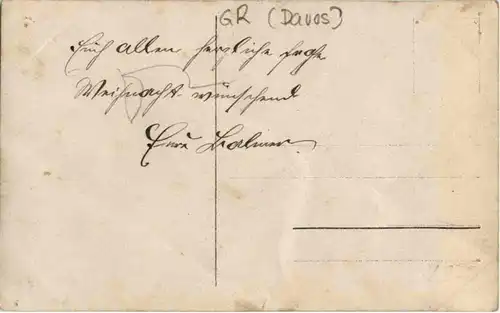 GR (Davos)
Euch allen herzliche frohe
Weihnacht wünschend
Eure